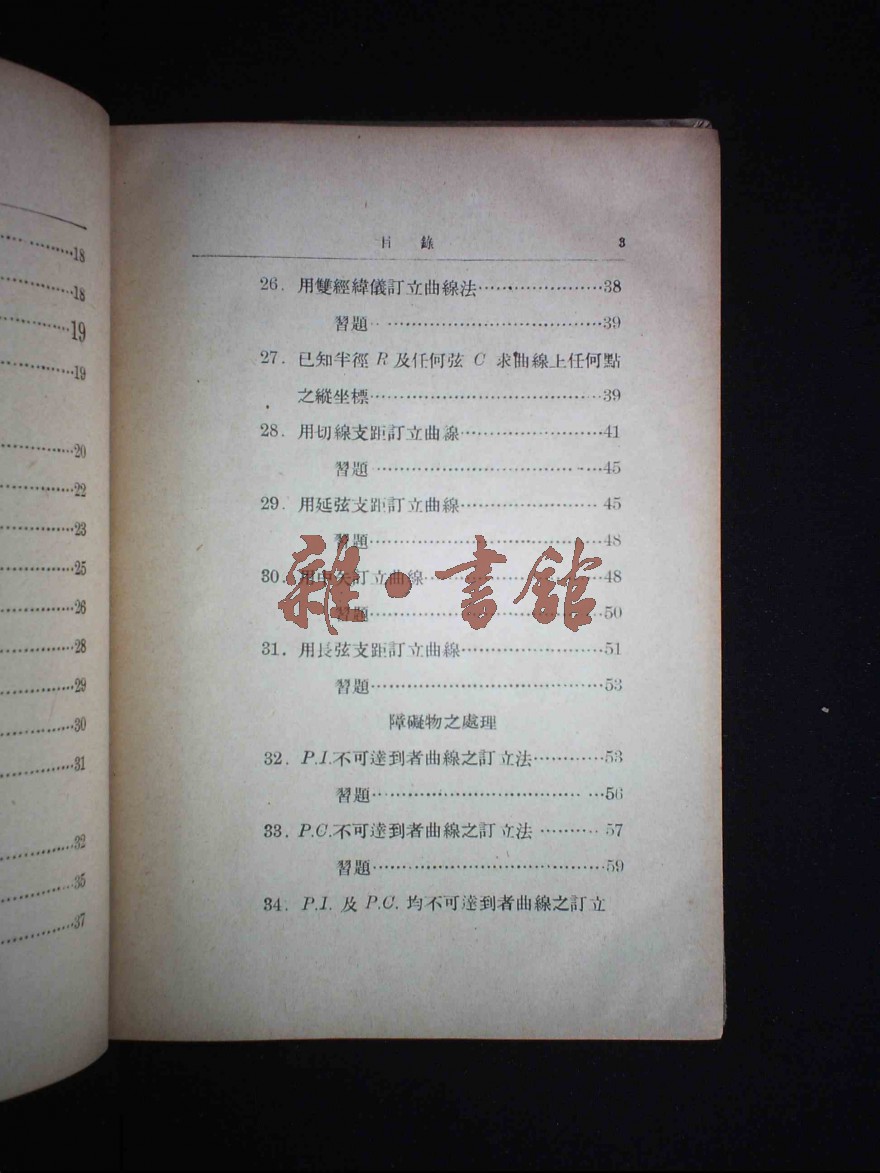 18
18
19
19
20
22
23
25
26
28
29
30
31
32
35
37
目 錄 3
26. 用雙經緯儀訂立曲線法……………………38
習題……………………………39
27. 已知半徑 R 及任何弦 C 求曲線上任何點
之縱坐標……………………………39
28. 用切線支距訂立曲線……………………41
習題……………………………45
29. 用延弦支距訂立曲線……………………45
習題……………………………48
30. 用中矢訂立曲線……………………48
習題……………………………50
31. 用長弦支距訂立曲線……………………51
習題……………………………53
障礙物之處理
32. P.I.不可達到者曲線之訂立法…………53
習題……………………………56
33. P.C.不可達到者曲線之訂立法…………57
習題……………………………59
34. P.I. 及 P.C. 均不可達到者曲線之訂立
雜·書館